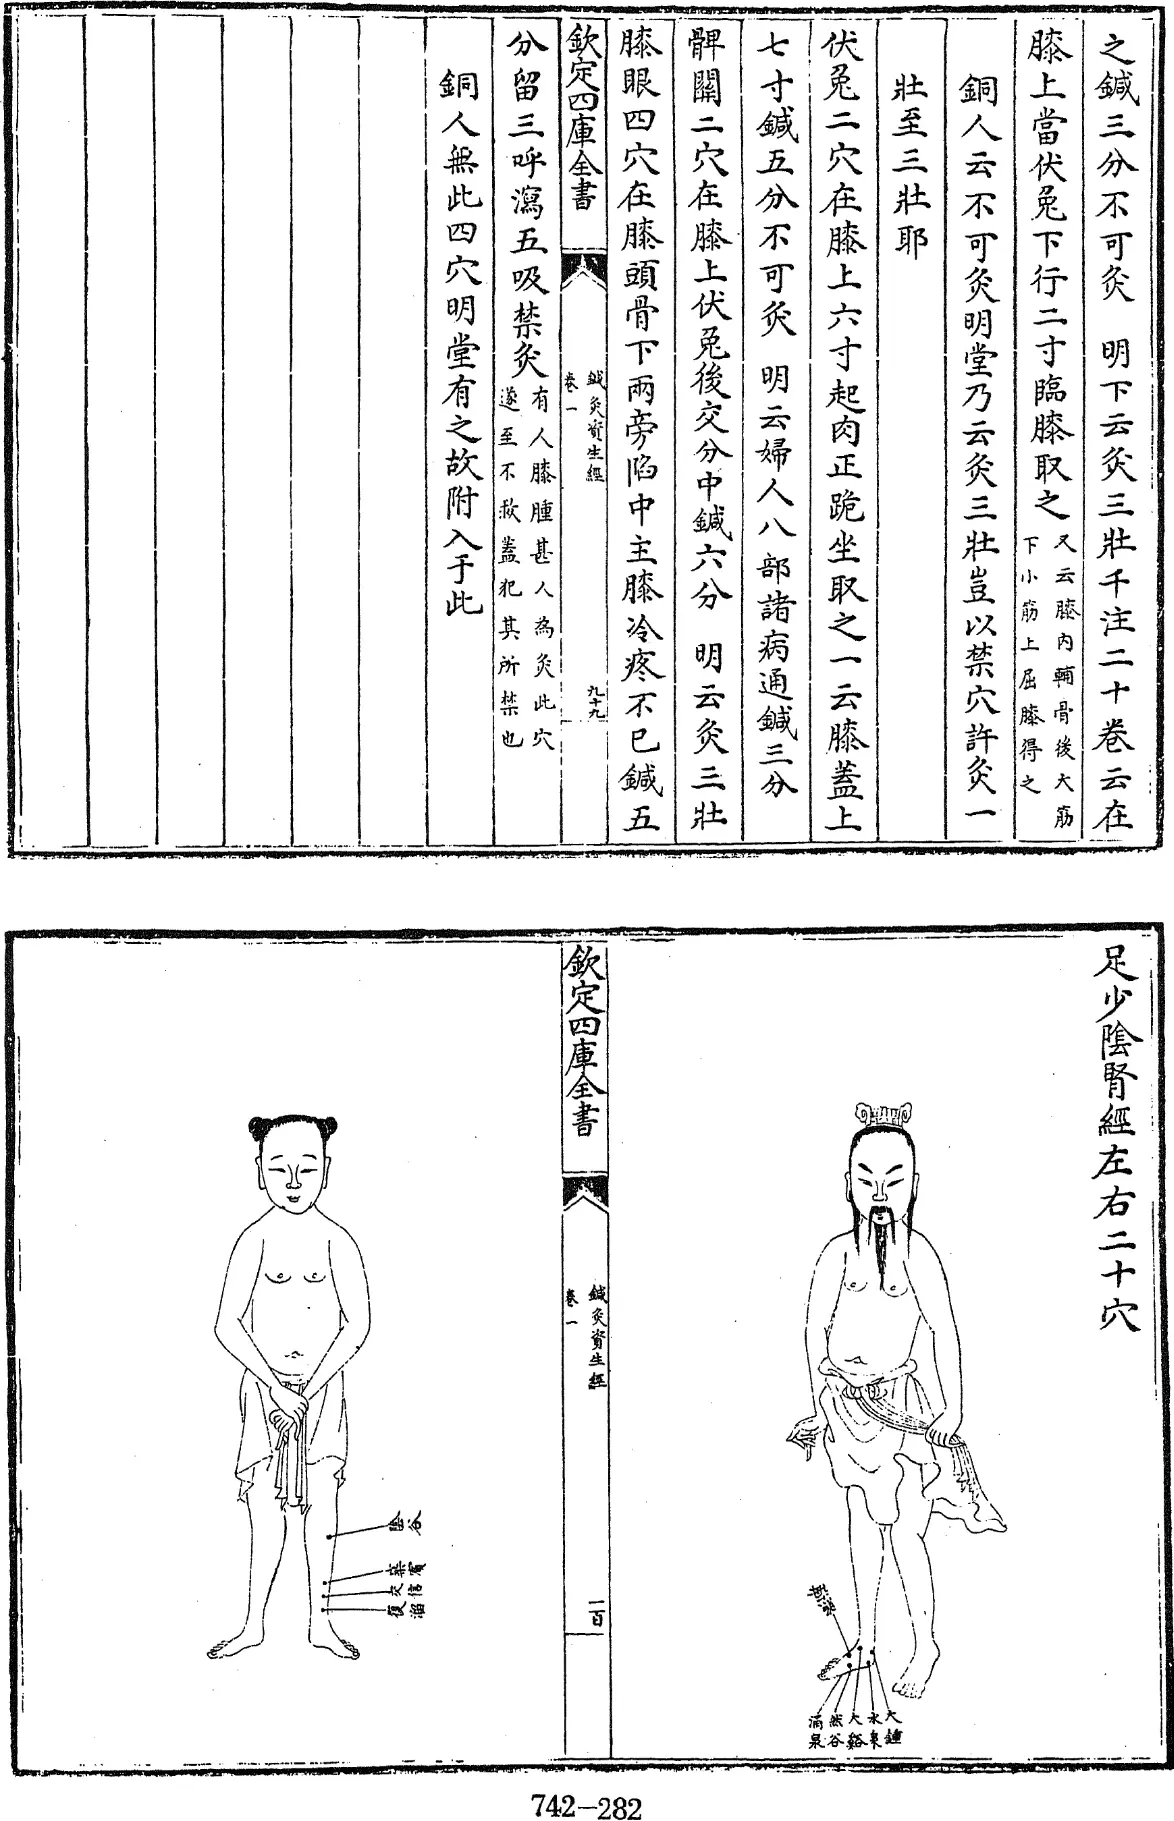 之鍼三分不可灸 明下云灸三壯千注二十卷云在
膝上當伏兎下行二寸臨膝取之又云膝内輔骨後大筋
下小筋上屈膝得之
銅人云不可灸明堂乃云灸三壯豈以禁穴許灸一
壯至三壯耶
伏兎二穴在膝上六寸起肉正跪坐取之一云膝蓋上
七寸鍼五分不可灸 明云婦人八部諸病通鍼三分
髀關二穴在膝上伏兎後交分中鍼六分 明云灸三壯
膝眼四穴在膝頭骨下兩旁陷中主膝冷疼不已鍼五
欽定四庫全書
鍼灸資生經
卷一
九十九
分留三呼瀉五吸禁灸有人膝腫甚人為灸此穴
遂至不救蓋犯其所禁也
銅人無此四穴明堂有之故附入于此
足少陰腎經左右二十穴
大鍾
水泉
大谿
然谷
涌泉
照海
欽定四庫全書
鍼灸資生經
卷一
一百
陰谷
築賓
交信
復溜
742-282